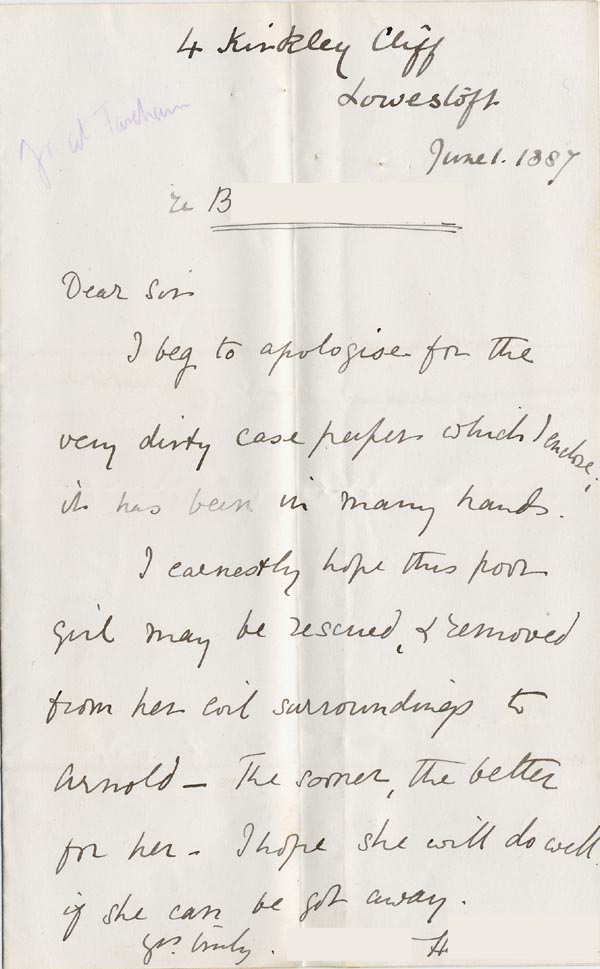 4 Kirkley Cliff
Lowestoft
June 1. 1887
Fareham
re B
Dear Sir
I beg to apologise for the
very dirty case paper which I enclose;
it has been in many hands.
I earnestly hope this poor
girl may be rescued, & removed
from her evil surroundings to
Arnold – The sooner, the better
for her – I hope she will do well
if she can be got away.
Yrs. truly.
H